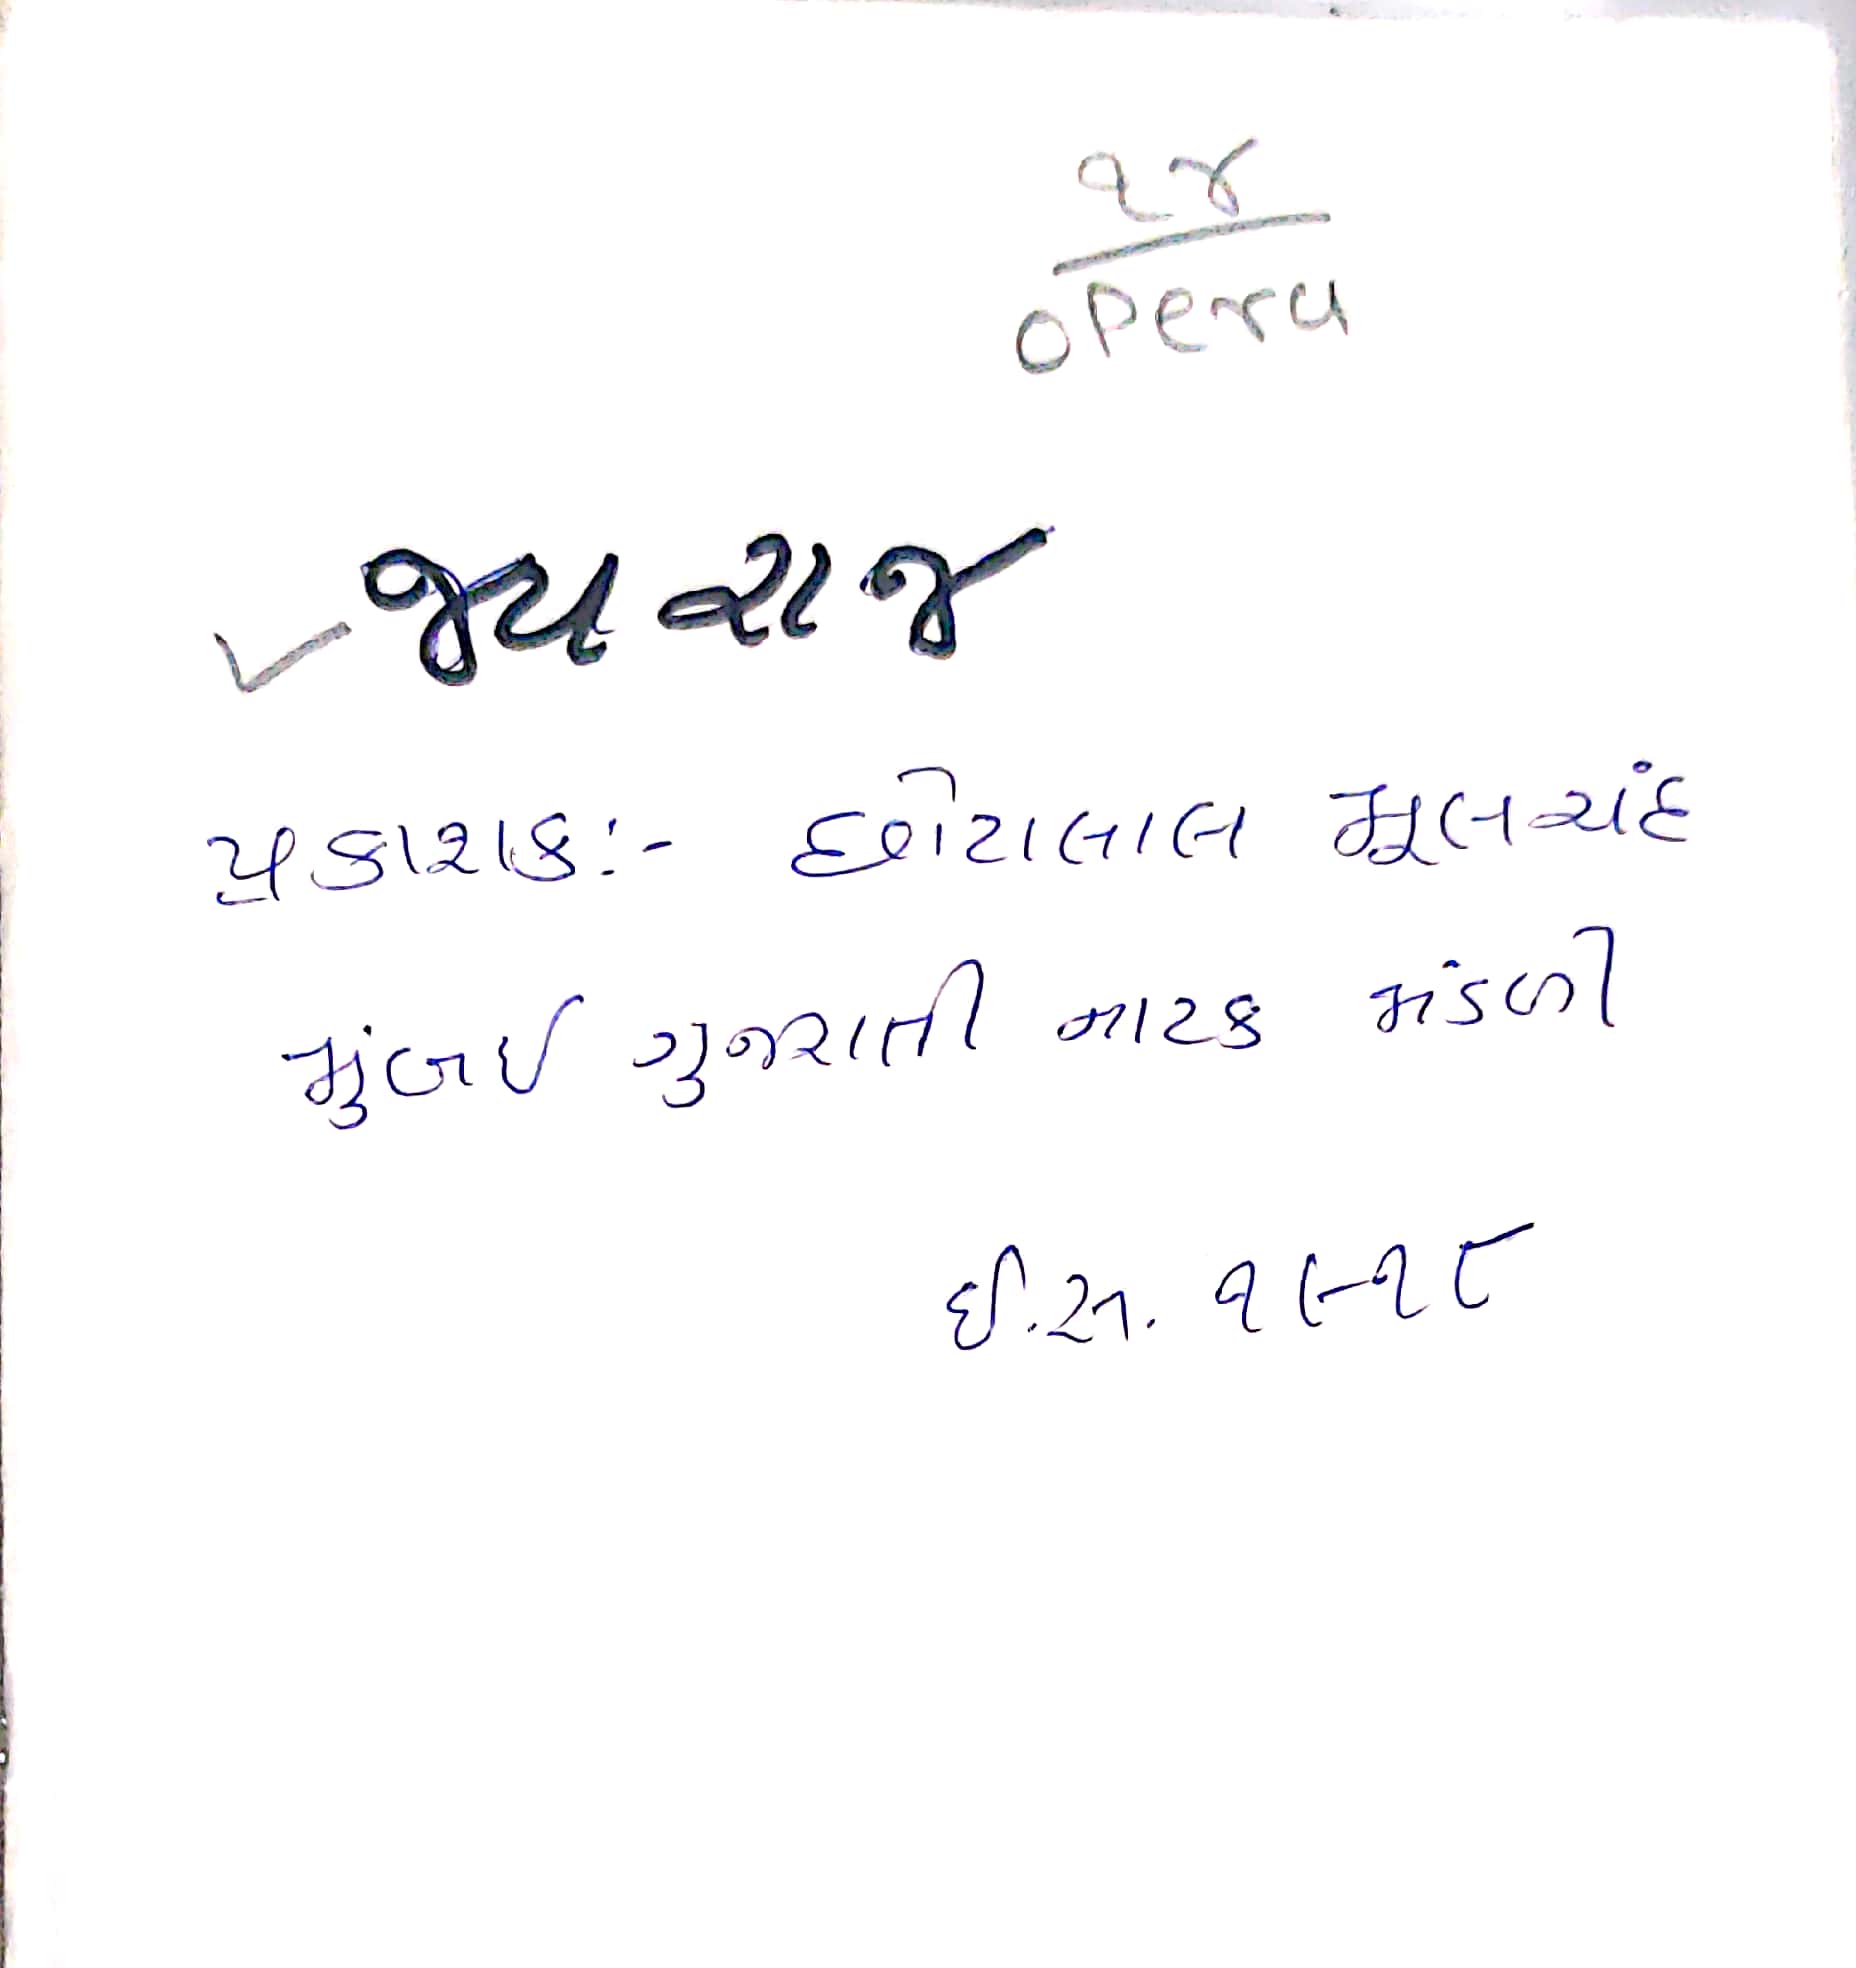 ૧૪
opera
જયરાજ
પ્રકાશક:- છોટાલાલ મૂલચંદ
મુંબઈ ગુજરાતી નાટક મંડળી
ઈ.સ. ૧૯૧૮